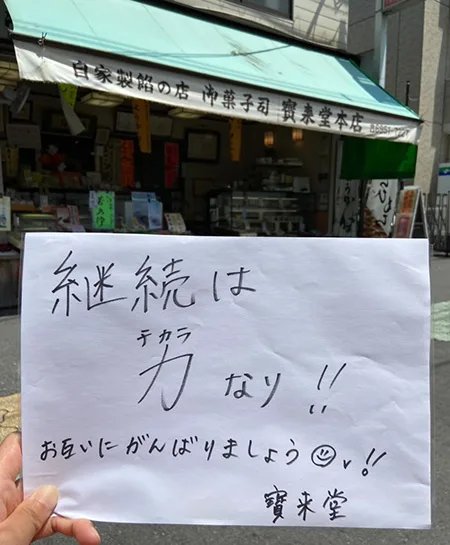 自家製餡の店 御菓子司 寶来堂本店
継続は
テカラ
力なり!!
お互いにがんばりましょう☺v!!
寶来堂